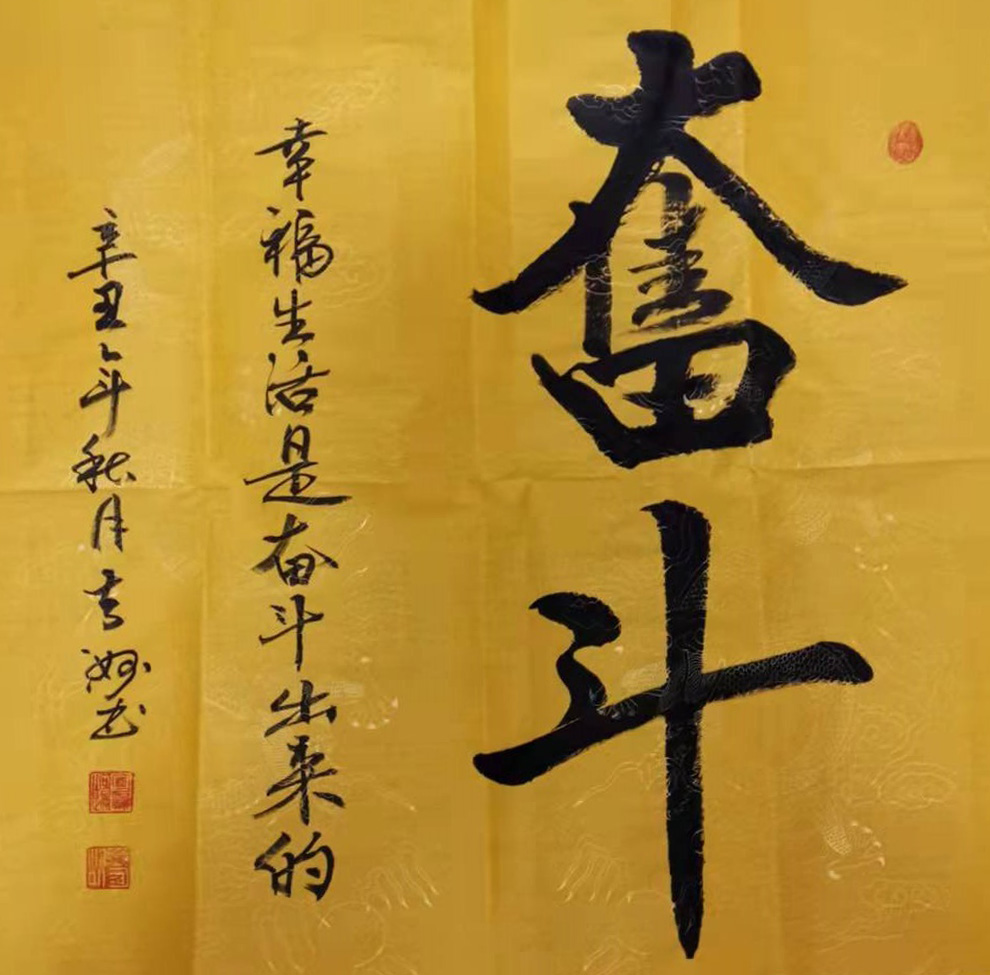 奮斗
幸福生活是奋斗出来的
辛丑年秋月